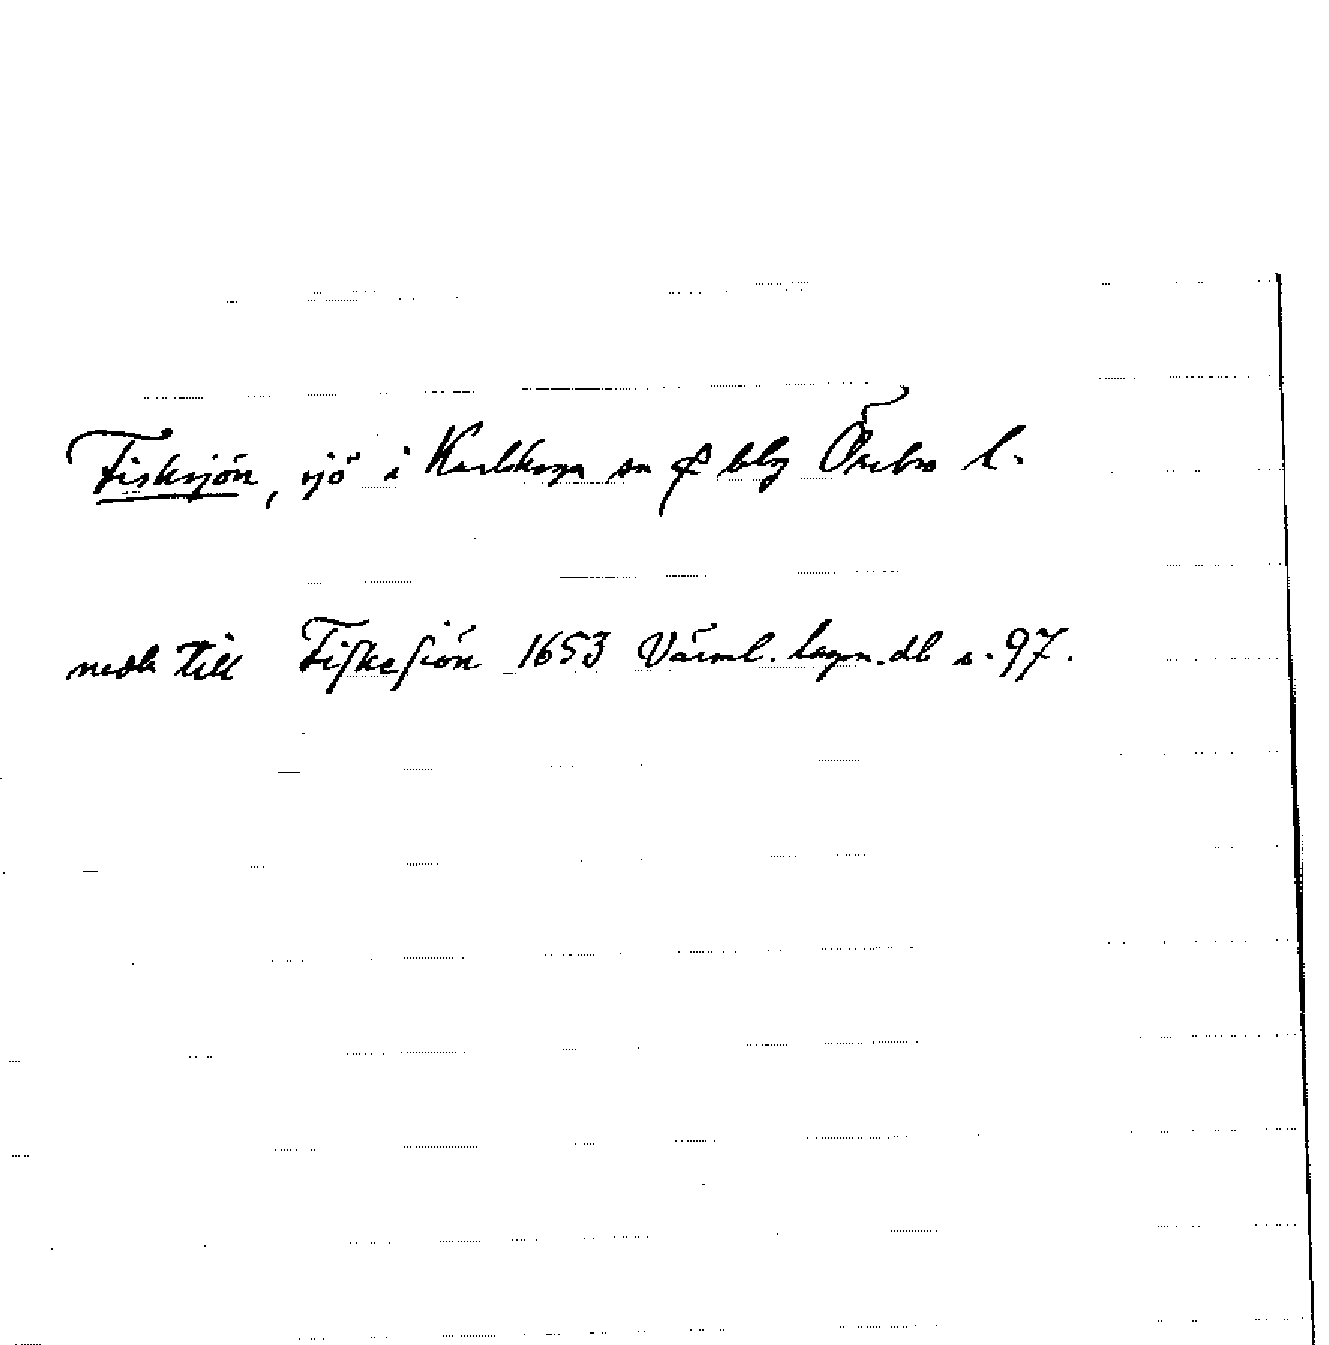 Fisksjön, sjö i Karlskoga sn & blg Örebro l.
nedh till Fiskesiön 1653 Värml. lagm.db s. 97.